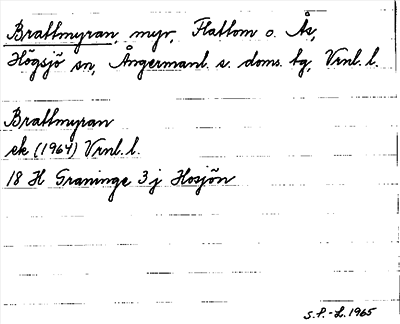 Brattmyran, myr, Flattom o. Ås,
Högsjö sn, Ångermanl. s. doms. tg, Vrnl. l.
Brattmyran
ek (1964) Vrnl. l.
18 H Graninge 3 j Hosjön
S.P.-L. 1965